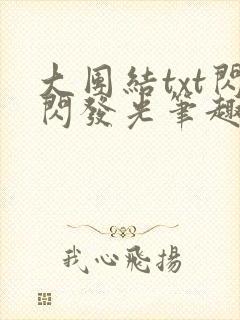 大团結txt閃
閃發光筆趣
我心飛揚